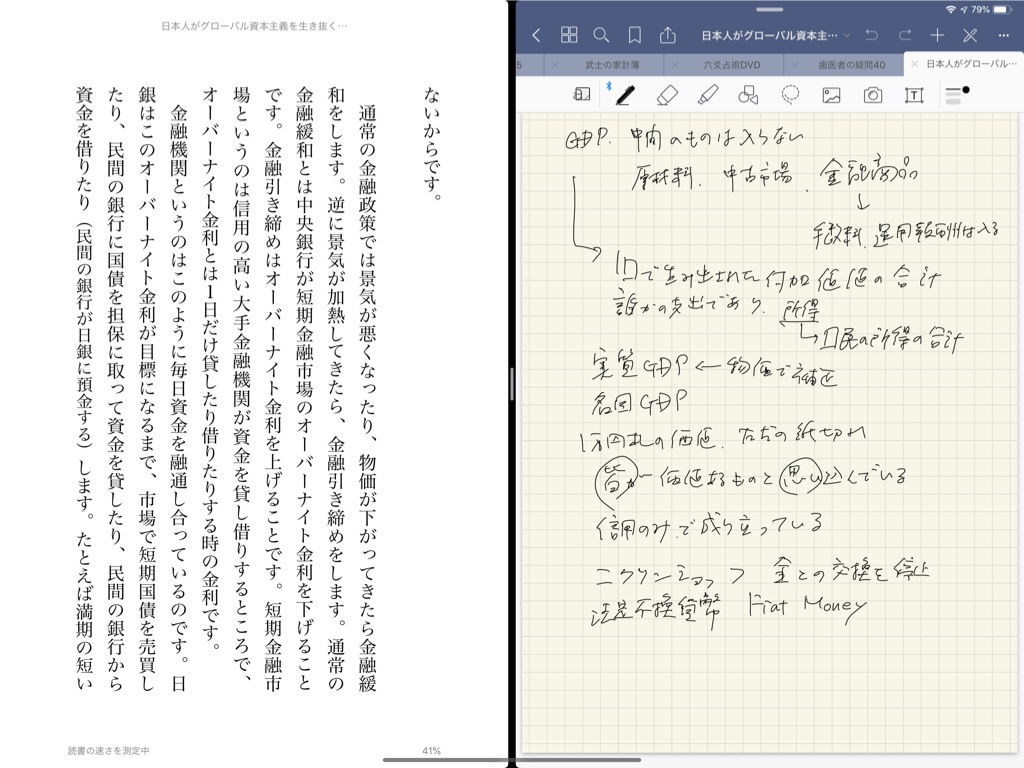 日本人がグローバル資本主義を生き抜く…
ないからです。
通常の金融政策では景気が悪くなったり、物価が下がってきたら金融緩
和をします。逆に景気が加熱してきたら、金融引き締めをします。通常の
金融緩和とは中央銀行が短期金融市場のオーバーナイト金利を下げること
です。金融引き締めはオーバーナイト金利を上げることです。短期金融市
場というのは信用の高い大手金融機関が資金を貸し借りするところで、
オーバーナイト金利とは1日だけ貸したり借りたりする時の金利です。
金融機関というのはこのように毎日資金を融通し合っているのです。日
銀はこのオーバーナイト金利が目標になるまで、市場で短期国債を売買し
たり、民間の銀行に国債を担保に取って資金を貸したり、民間の銀行から
資金を借りたり（民間の銀行が日銀に預金する）します。たとえば満期の短い
読書の速さを測定中
41%
79%
日本人がグローバル資本主…
5
武士の家計簿
六爻占術DVD
歯医者の疑問40
日本人がグローバル…
GDP. 中間のものは入らない
原材料. 中古市場. 金融商品
↓
手数料. 運用報酬は入る
国で生み出された付加価値の合計
誰かの支出であり. 所得
国民の所得の合計
実質GDP ← 物価で補正
名目GDP
1万円札の価値. ただの紙切れ
皆が価値あるものと思い込んでいる
信用のみで成り立っている
ニクソンショック 金との交換を停止
法定不換貨幣 Fiat Money